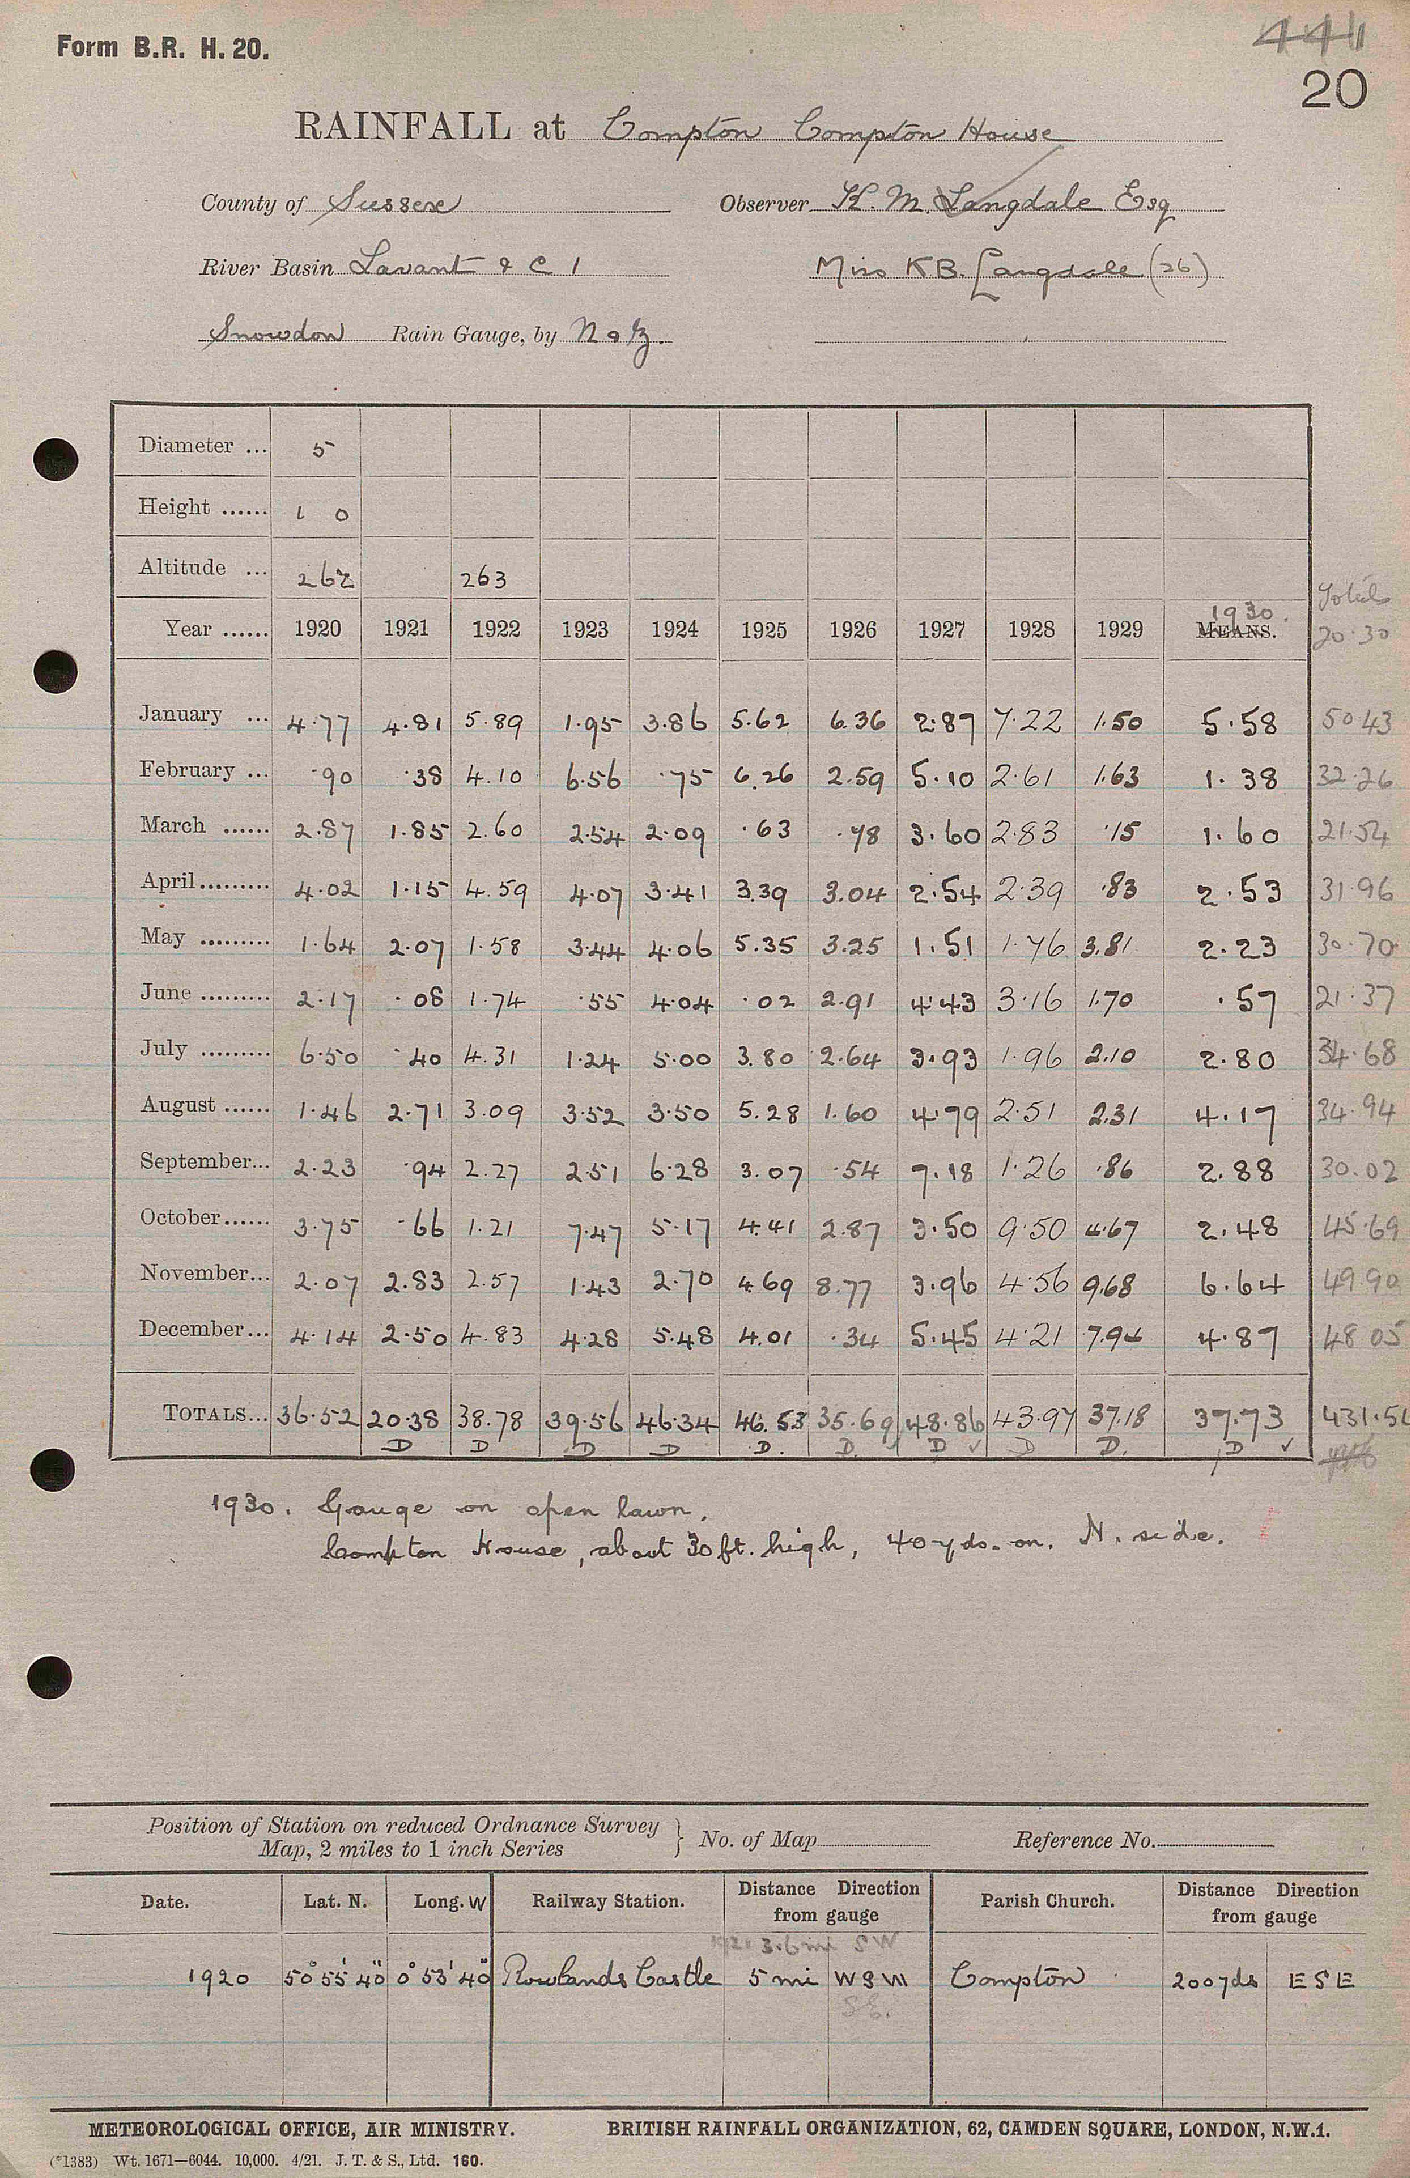 Form B.R. H. 20.
441
20
RAINFALL at Compton Compton House
County of Sussex Observer H. M. Langdale Esq
River Basin Lavant & C 1 Miss K B. Langdale (26)
Snowdon Rain Gauge, by N & Z.
Diameter ... 5
Height ...... 1 0
Altitude ... 262 263
Totals
Year ...... 1920 1921 1922 1923 1924 1925 1926 1927 1928 1929 1930 MEANS. 20-30
January ... 4.77 4.81 5.89 1.95 3.86 5.62 6.36 2.87 7.22 1.50 5.58 50.43
February ... .90 .38 4.10 6.56 .75 6.26 2.59 5.10 2.61 1.63 1.38 32.26
March ...... 2.87 1.85 2.60 2.54 2.09 .63 .78 3.60 2.83 .15 1.60 21.54
April ......... 4.02 1.15 4.59 4.07 3.41 3.39 3.04 2.54 2.39 .83 2.53 31.96
May ......... 1.64 2.07 1.58 3.44 4.06 5.35 3.25 1.51 1.76 3.81 2.23 30.70
June ......... 2.17 .08 1.74 .55 4.04 .02 2.91 4.43 3.16 1.70 .57 21.37
July ......... 6.50 .40 4.31 1.24 5.00 3.80 2.64 3.93 1.96 2.10 2.80 34.68
August ...... 1.46 2.71 3.09 3.52 3.50 5.28 1.60 4.79 2.51 2.31 4.17 34.94
September... 2.23 .94 2.27 2.51 6.28 3.07 .54 7.18 1.26 .86 2.88 30.02
October...... 3.75 .66 1.21 7.47 5.17 4.41 2.87 3.50 9.50 4.67 2.48 45.69
November... 2.07 2.83 2.57 1.43 2.70 4.69 8.77 3.96 4.56 9.68 6.64 49.90
December... 4.14 2.50 4.83 4.28 5.48 4.01 .34 5.45 4.21 7.94 4.87 48.05
TOTALS... 36.52 20.38 38.78 39.56 46.34 46.53 35.69 48.86 43.97 37.18 37.73 431.54
D D D D D. D. D ✓ D D. D ✓
1930. Gauge on open lawn.
Compton House, about 30 ft. high, 40 yds. on. N. side.
Position of Station on reduced Ordnance Survey
Map, 2 miles to 1 inch Series } No. of Map Reference No.
Date. Lat. N. Long. W Railway Station. Distance Direction from gauge Parish Church. Distance Direction from gauge
3.6 mi SW
1920 50° 55' 40" 0° 53' 40" Rowlands Castle 5 mi W S W Compton 200 yds E S E
SE.
METEOROLOGICAL OFFICE, AIR MINISTRY. BRITISH RAINFALL ORGANIZATION, 62, CAMDEN SQUARE, LONDON, N.W.1.
(*1383) Wt. 1671—6044. 10,000. 4/21. J. T. & S., Ltd. 160.